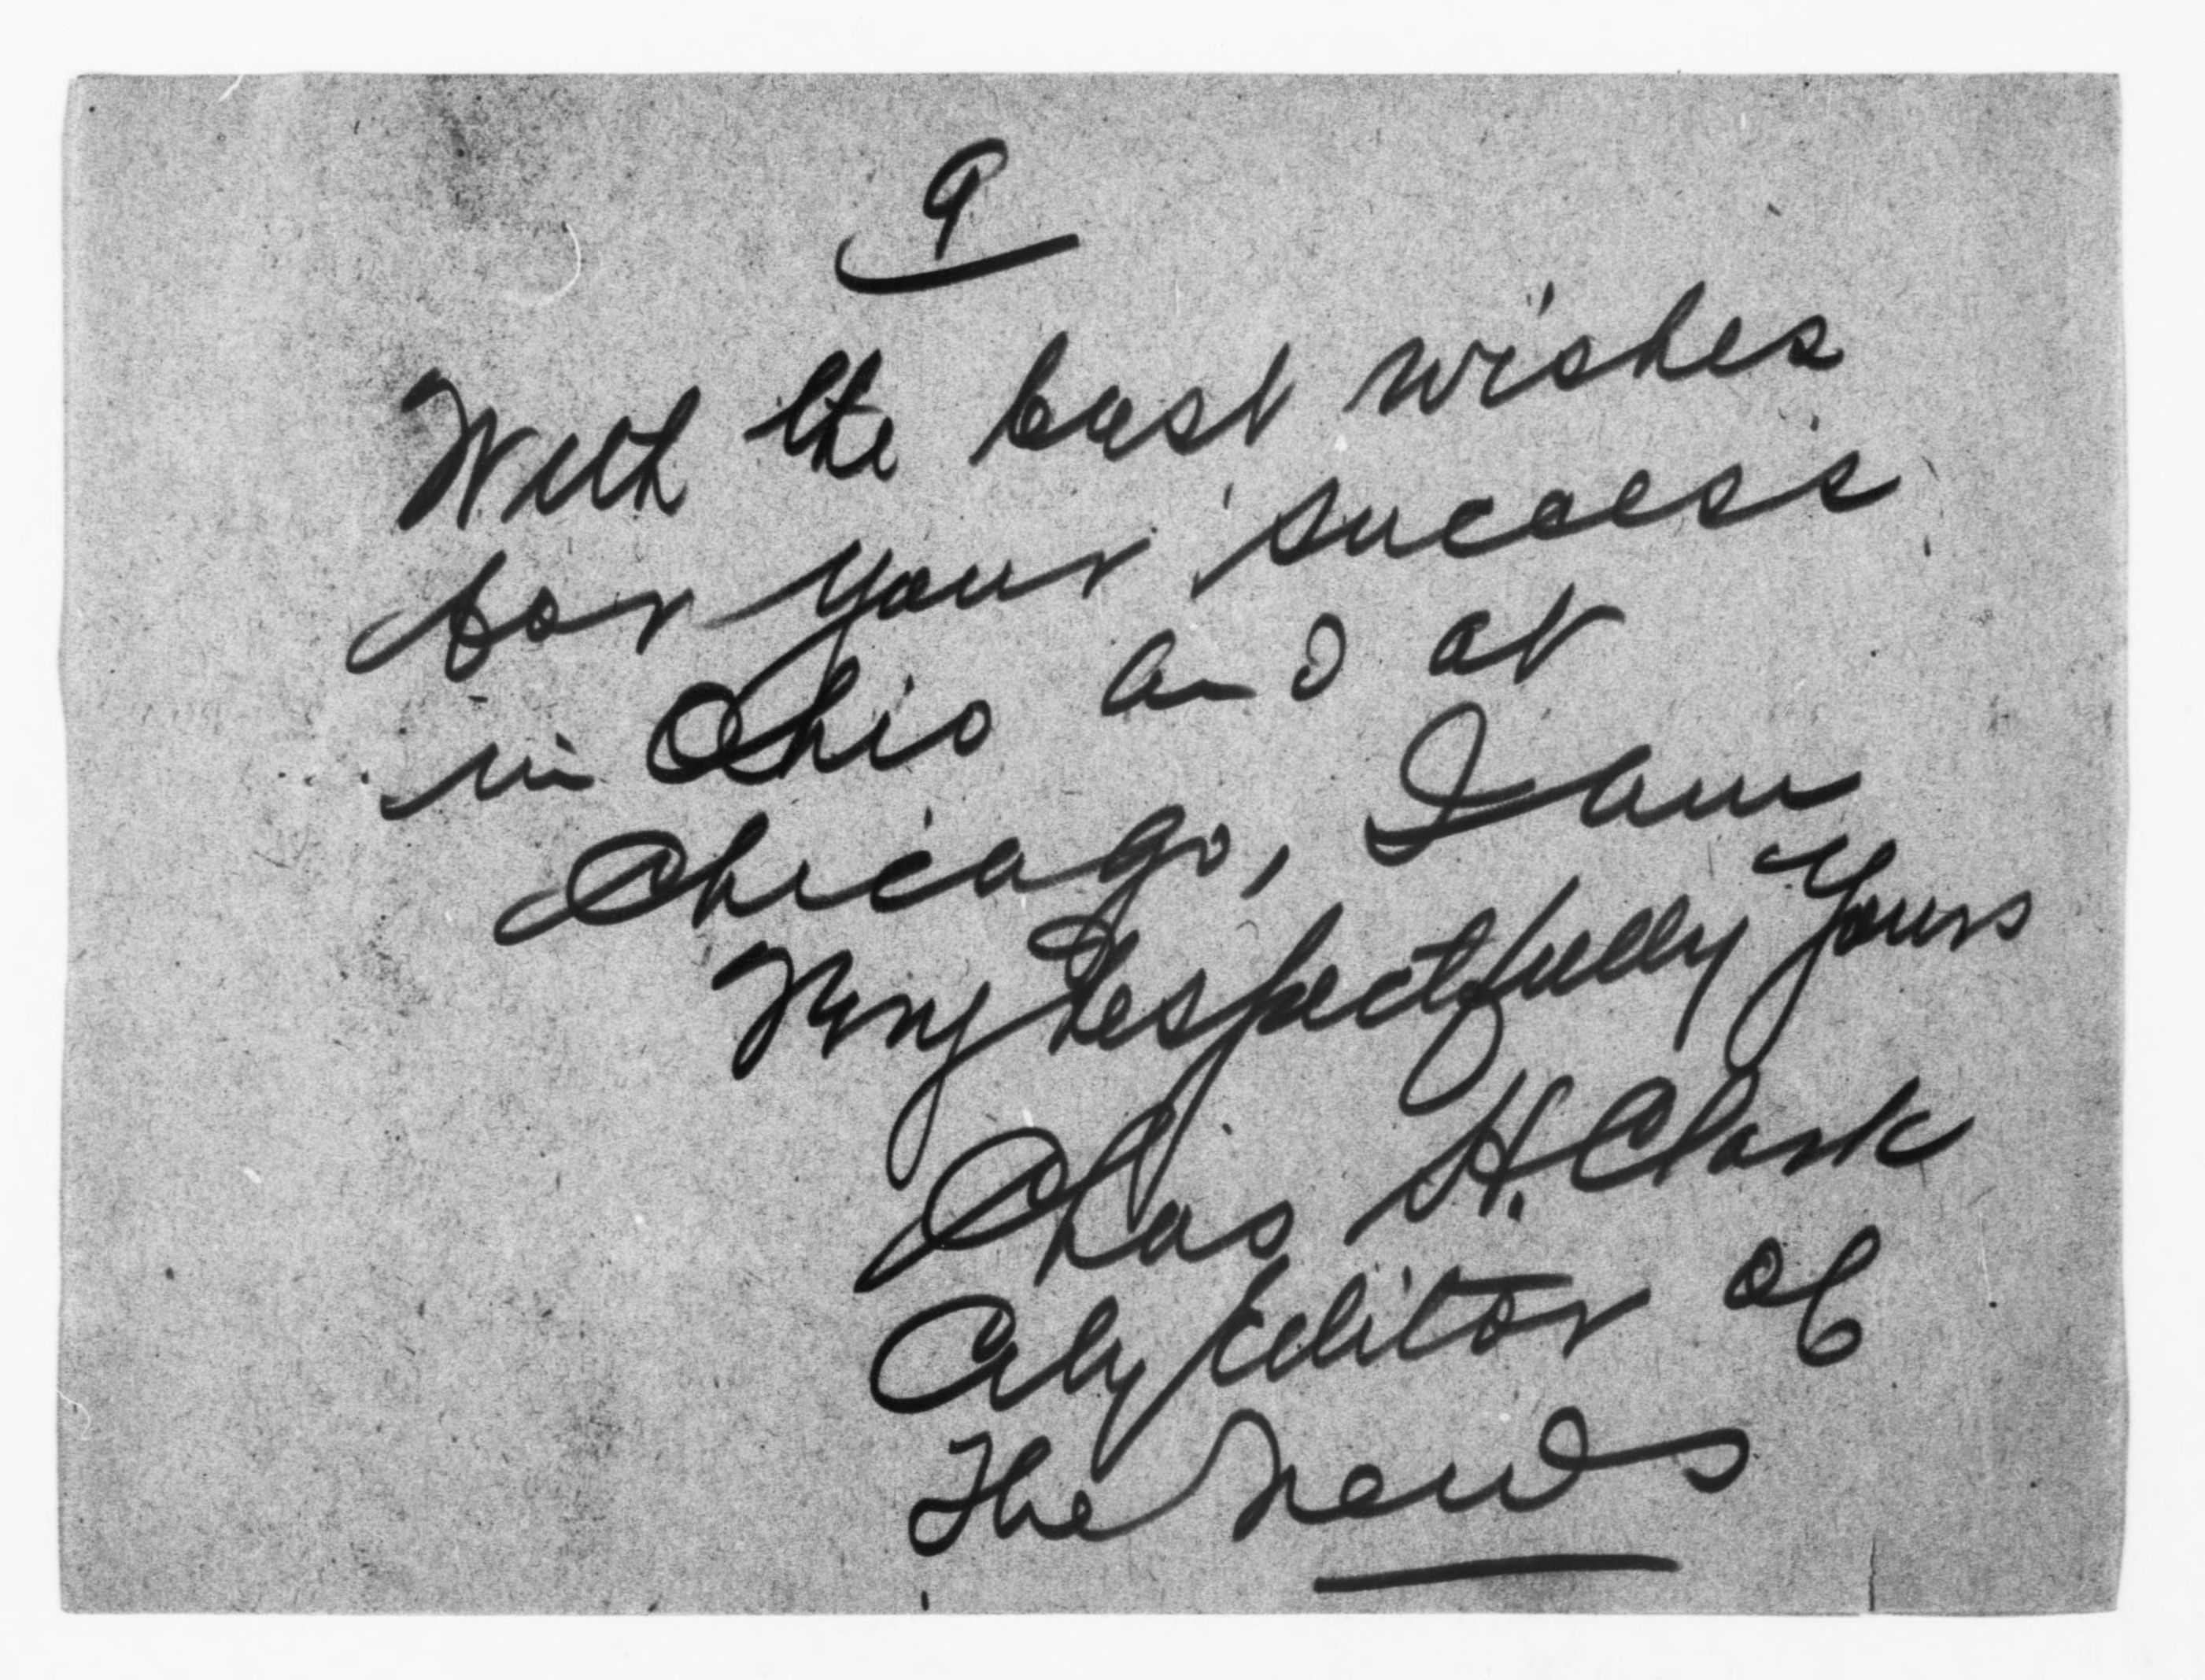 9
With the best wishes
for your success
in Ohio and at
Chicago, I am
Very Respectfully Yours
Chas H. Clark
City Editor of
The News